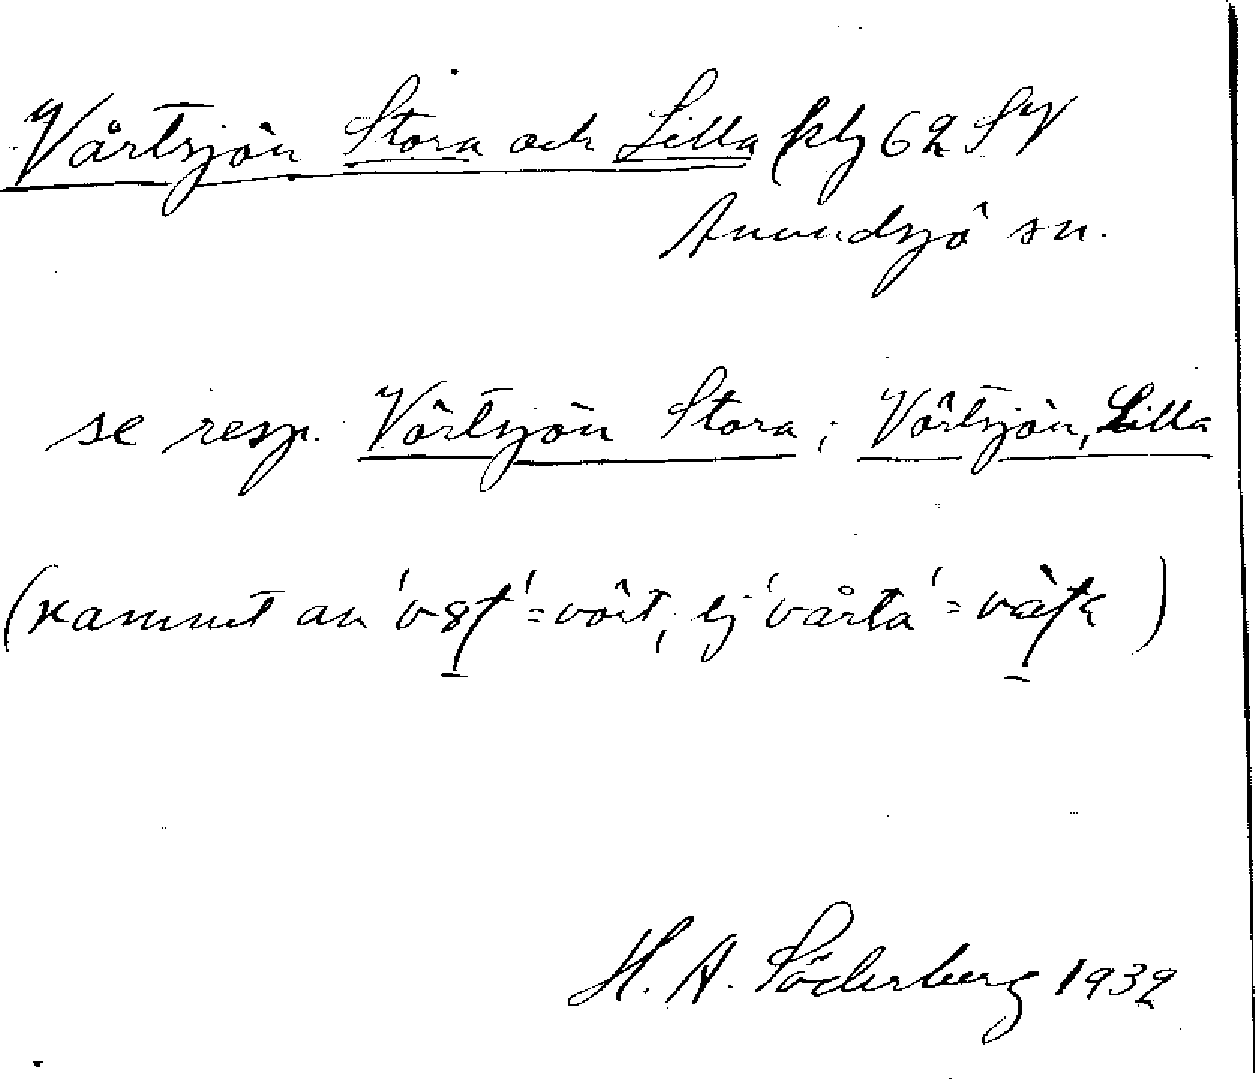 Vårtsjön Stora och Lilla (klg 62 SV
Anundsjö sn.
se resp. Vörtsjön Stora; Vörtsjön, Lilla
(namnet av = vört, ej 'vårta' =)
H. A. Söderberg 1932